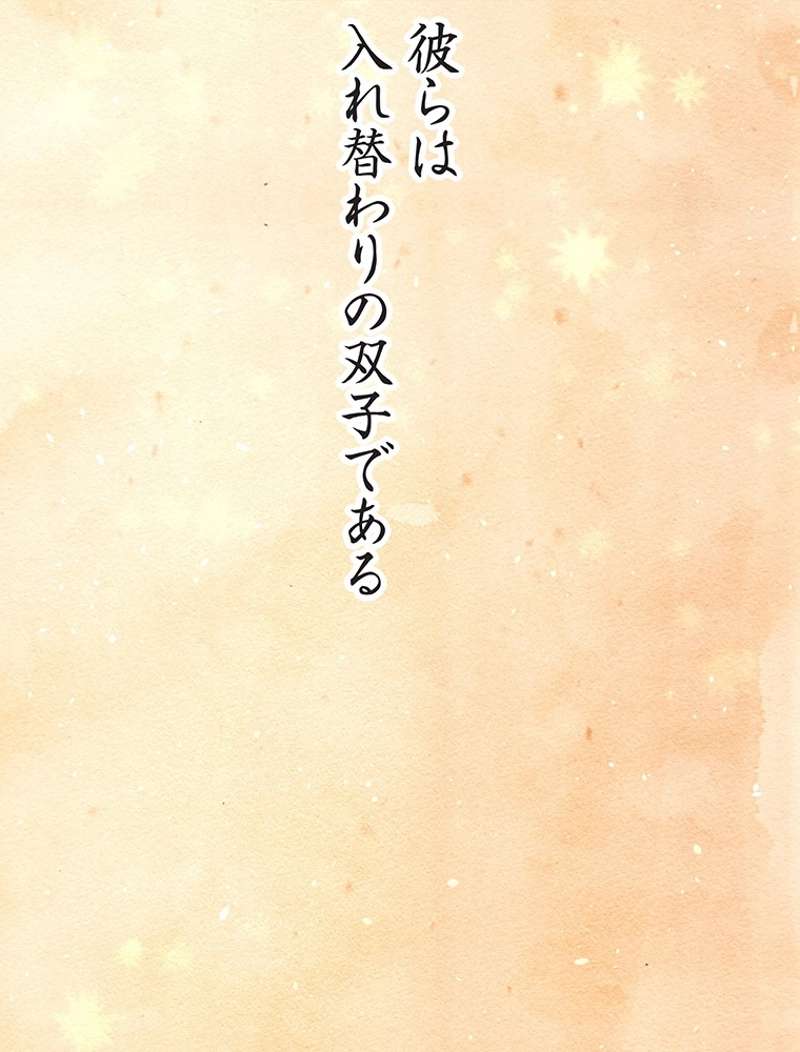 彼らは
入れ替わりの双子である